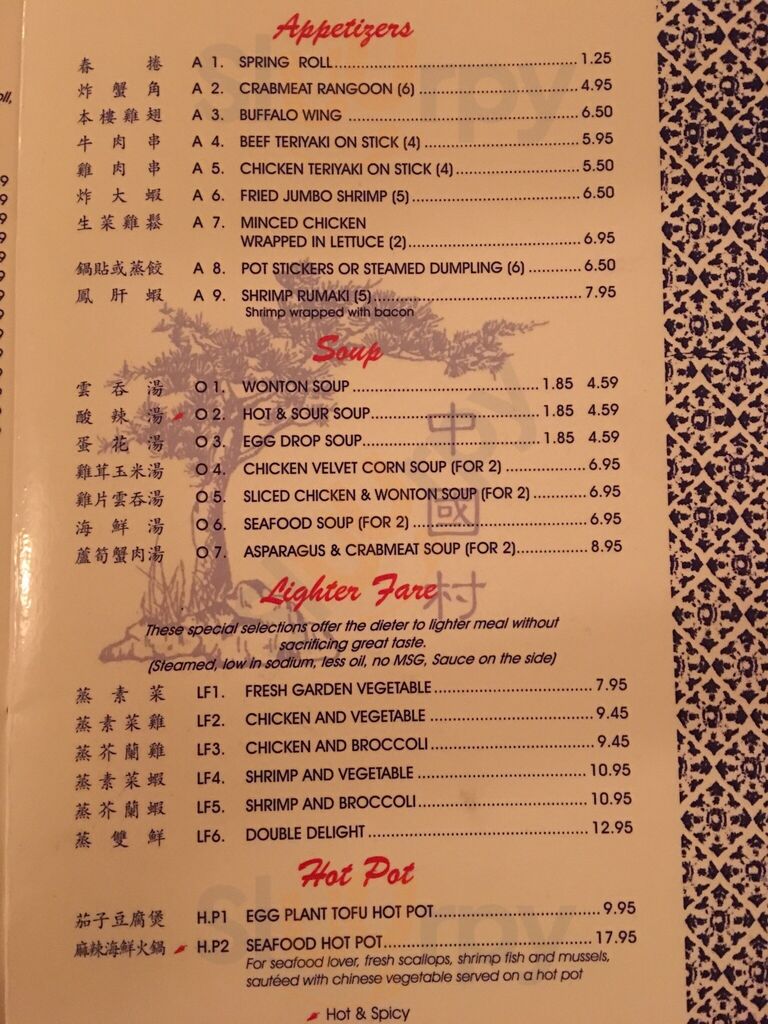 Appetizers
春捲 A 1. SPRING ROLL 1.25
炸蟹角 A 2. CRABMEAT RANGOON (6) 4.95
本樓雞翅 A 3. BUFFALO WING 6.50
牛肉串 A 4. BEEF TERIYAKI ON STICK (4) 5.95
雞肉串 A 5. CHICKEN TERIYAKI ON STICK (4) 5.50
炸大蝦 A 6. FRIED JUMBO SHRIMP (5) 6.50
生菜雞鬆 A 7. MINCED CHICKEN
WRAPPED IN LETTUCE (2) 6.95
鍋貼或蒸餃 A 8. POT STICKERS OR STEAMED DUMPLING (6) 6.50
鳳肝蝦 A 9. SHRIMP RUMAKI (5) 7.95
Shrimp wrapped with bacon
Soup
雲吞湯 O 1. WONTON SOUP 1.85 4.59
酸辣湯 O 2. HOT & SOUR SOUP 1.85 4.59
蛋花湯 O 3. EGG DROP SOUP 1.85 4.59
雞茸玉米湯 O 4. CHICKEN VELVET CORN SOUP (FOR 2) 6.95
雞片雲吞湯 O 5. SLICED CHICKEN & WONTON SOUP (FOR 2) 6.95
海鮮湯 O 6. SEAFOOD SOUP (FOR 2) 6.95
蘆筍蟹肉湯 O 7. ASPARAGUS & CRABMEAT SOUP (FOR 2) 8.95
中國村
Lighter Fare
These special selections offer the dieter to lighter meal without
sacrificing great taste.
(Steamed, low in sodium, less oil, no MSG, Sauce on the side)
蒸素菜 LF1. FRESH GARDEN VEGETABLE 7.95
蒸素菜雞 LF2. CHICKEN AND VEGETABLE 9.45
蒸芥蘭雞 LF3. CHICKEN AND BROCCOLI 9.45
蒸素菜蝦 LF4. SHRIMP AND VEGETABLE 10.95
蒸芥蘭蝦 LF5. SHRIMP AND BROCCOLI 10.95
蒸雙鮮 LF6. DOUBLE DELIGHT 12.95
Hot Pot
茄子豆腐煲 H.P1 EGG PLANT TOFU HOT POT 9.95
麻辣海鮮火鍋 H.P2 SEAFOOD HOT POT 17.95
For seafood lover, fresh scallops, shrimp fish and mussels,
sautéed with chinese vegetable served on a hot pot
Hot & Spicy